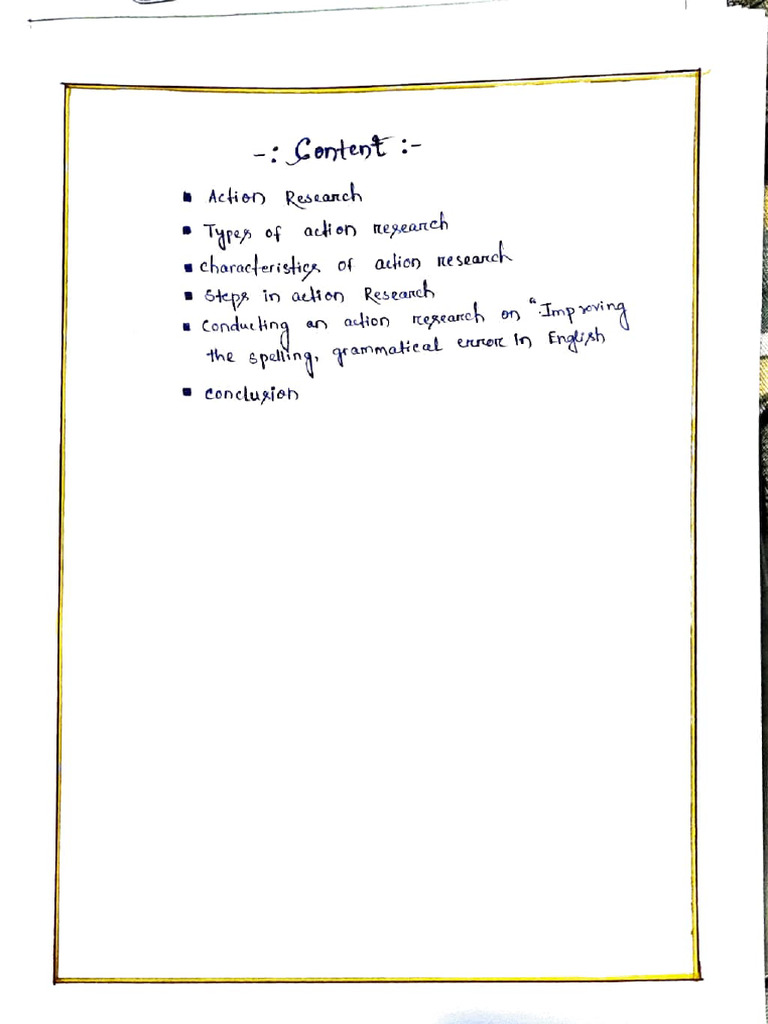 -: Content :-
▪ Action Research
▪ Types of action research
▪ characteristics of action research
▪ Steps in action Research
▪ Conducting an action research on "Improving
the spelling, grammatical error In English
▪ conclusion